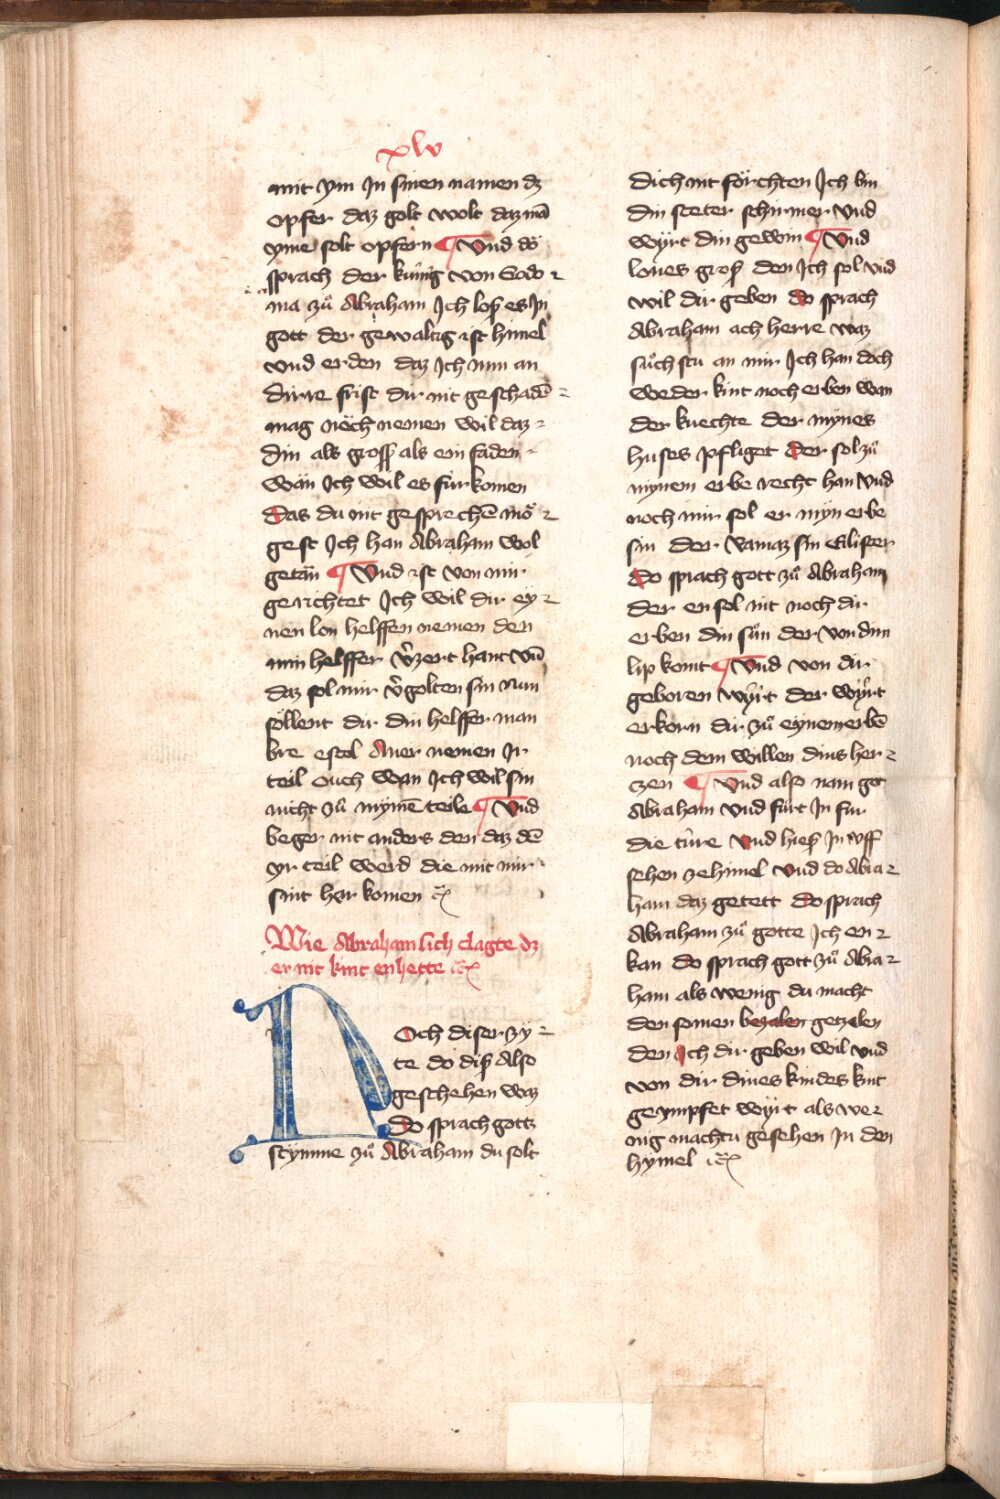 xlv
mit ym In sinen namen dz
opfer daz golt wolt daz mā
yme solt opfern ¶ Vnd do
sprach der kúnig von Sodo-
ma zů Abraham Ich lop es In
gott der gewaltig ist himel
vnd erden daz Ich nun an
dirre frist dir nit geschadē
mag noch nemen wil daz
din als gross als ein faden
wan Ich wil es fúrkomen
das du nit gesprechē mo̊-
gest Ich han Abraham wol
getan ¶ Vnd ist von mir
gerichtet Ich wil dir ey-
nen lon helffen nemen den
min helffer v̄zert hant vn̄
daz sol mir v̄golten sin nun
söllent dir din helffer man
bre escol Aner nemen Ir
teil ouch wan Ich wil sin
nicht zů mynē teile ¶ Vnd
beger nit anders den daz dē
yr teil werd die mit mir
sint her komen ⁊c
Wie Abraham sich clagte dz
er nit kint enhette ⁊c
Noch diser zy-
te do diß Also
geschehen waz
do sprach gottz
stymme zů Abraham du solt
dich nit förchten Ich bin
din steter schirmer vnd
wyrt din gewin ¶ Vnd
lones groß den Ich sol vnd
wil dir geben do sprach
Abraham ach herre waz
sůchstu an mir Ich han doch
weder kint noch erben wan
der knechte der mynes
huses pfliget der sol zů
mynem erbe recht han vnd
noch mir sol er myn erbe
sin der Damaz sin Elister
do sprach gott zů Abraham
der en sol nit noch dir
erben din sůn der von dinn
lip komt ¶ Vnd von dir
geboren wyrt der wyrt
erkorn dir zů eynem erbē
noch dem willen dins her-
czen ¶ Vnd also nam got
Abraham vnd fúrt In fur
die túre vnd hieß In vff
sehen ze himel vnd do Abra-
ham daz getett do sprach
Abraham zů gotte Ich en-
kan do sprach gott zů Abra-
ham als wenig du macht
den somen bezalen getzelen
den Ich dir geben wil vnd
von dir dines kindes kint
geympfet wyrt als we-
nig machtu gesehen In den
hymel ⁊c